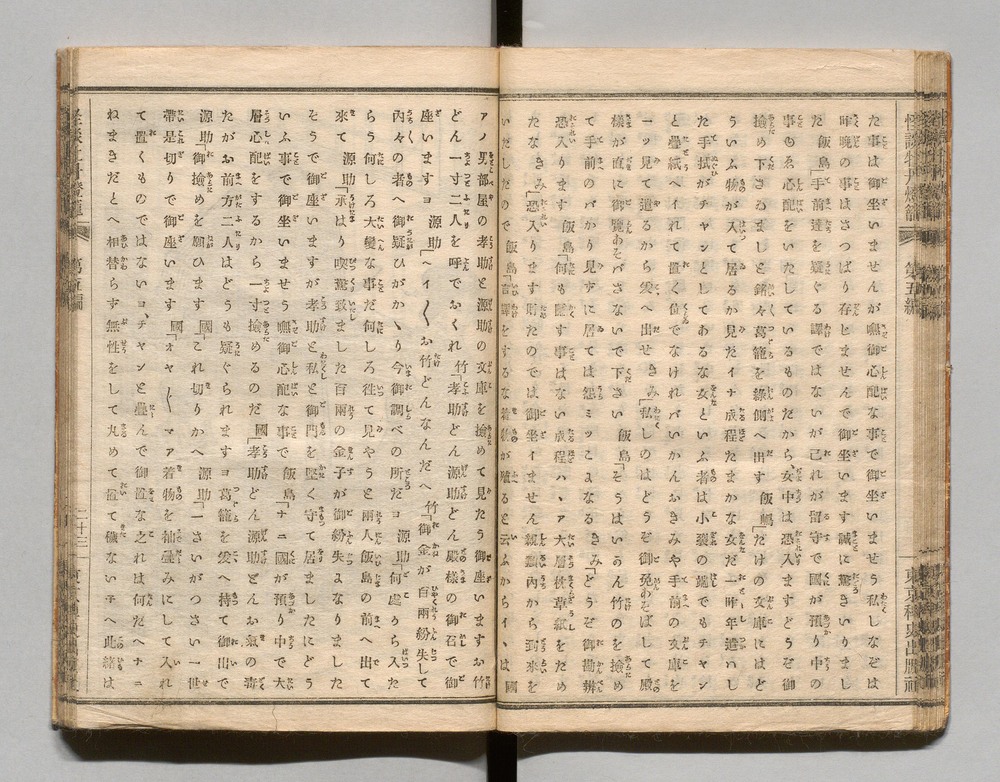 た事は御坐いませんが嘸御心配な事で御坐いませう私しなどは
昨晩の事はさつぱり存じませんで御坐います誠に驚きいりまし
た 飯島「手前達を疑ぐる譯ではないが己れが留守で國が預り中の
事ゆゑ心配をいたしているものだから、女中は恐入ますどうぞ御
撿め下さるましと銘々葛籠を緣側へ出す 飯嶋「たけの文庫にはど
ういふ物が入て居るか見たイナ成程たまかな女だ一昨年遣はし
た手拭がチヤンとしてあるな女といふ者は小裂の端でもチヤン
と疊紙へイれて置く位でなけれバいかんおきみや手前の文庫を
一ツ見て遣るから爰へ出せ きみ「私しのはどうぞ御免あそばして殿
樣が直に御覽あそバさないで下さい 飯島「そうはいかん竹のを撿め
て手前のバかり見ずに居ては怨ミツこよなる きみ「どうぞ御勘辨
恐入ります 飯島「何も隱す事はない成程ハヽア大層枕草紙をため
たな きみ「恐入ります貯たのでは御坐イません親類内から到來を
いたしたので 飯島「言譯をするな着物が殖ると云ふからイヽは 國
アノ男部屋の孝助と源助の文庫を撿めて見たう御座いますお竹
どん一寸二人を呼でおくれ 竹「孝助どん源助どん殿樣の御召で御
座いますヨ 源助「ヘイ〳〵お竹どんなんだへ 竹「御金が百兩紛失して
內々の者へ御疑ひがかゝり今御調べの所だヨ 源助「何處から入た
らう何しろ大變な事だ何しろ徃て見やうと兩人飯島の前へ出て
來て 源助「承はり喫驚致ました百兩の金子が御紛失よなりました
そうで御座いますが孝助と私と御門を堅く守て居ましたにどう
いふ事で御坐いませう嘸御心配な事で 飯島「ナニ國が預り中で大
層心配をするから一寸撿めるのだ 國「孝助どん源助どんお氣の毒
たがお前方二人はどうも疑ぐられますヨ葛籠を爰へ持て御出で
源助「御撿めを願ひます 國「これ切りかへ 源助「一さいがつさい一世
帶是切りで御座います 國「オヤ〳〵マア着物を袖疊みにして入れ
て置くものではないヨ、チヤンと疊んで御置な之れは何だへナニ
ねまきだとへ相替らず無性をして丸めて置て穢ないチへ此紐は
第五編
第五編
二十三